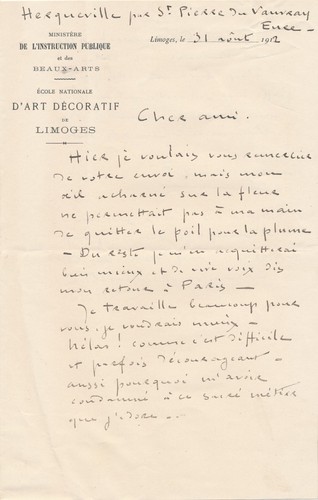 Herqueville par St Pierre du Vauvray
Eure -
MINISTÈRE
DE L'INSTRUCTION PUBLIQUE
et des
BEAUX-ARTS
ÉCOLE NATIONALE
D'ART DÉCORATIF
DE
LIMOGES
Limoges, le 31 août 1912
Cher ami.
Hier je voulais vous remercier
de votre envoi, mais mon
œil acharné sur la fleur
ne permettait pas à ma main
de quitter le poil pour la plume
- Du reste je m'en acquitterai
bien mieux et de vive voix dès
mon retour à Paris -
Je travaille beaucoup pour
vous, je voudrais mieux -
hélas! comme c'est difficile
et parfois décourageant -
aussi pourquoi m'avoir
condamné à ce sacré métier
que j'adore ...